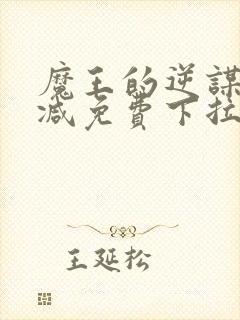 魔王的逆謀
减免費下拉
王延松